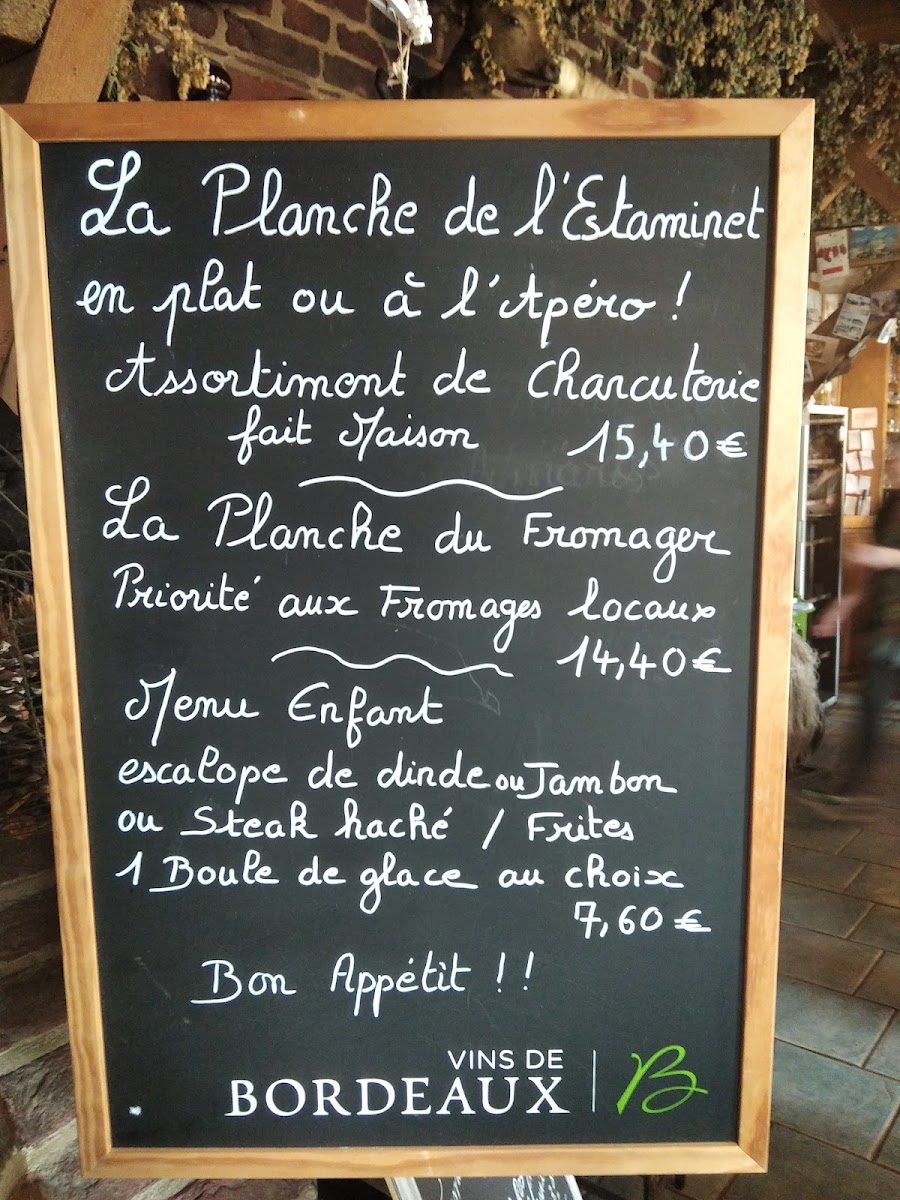 La Planche de l'Estaminet
en plat ou à l'Apéro !
Assortiment de Charcuterie
fait Maison 15,40€
La Planche du Fromager
Priorité aux Fromages locaux
14,40€
Menu Enfant
escalope de dinde ou Jambon
ou Steak haché / Frites
1 Boule de glace au choix
7,60€
Bon Appétit !!
VINS DE
BORDEAUX | B